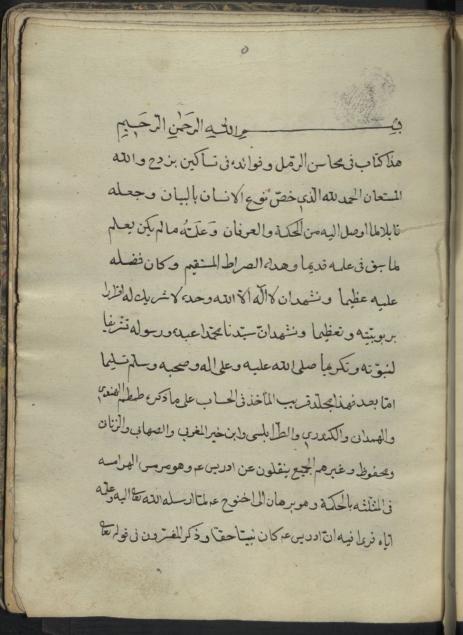 ٥
بسم الله الرحمن الرحيم
هذا كتاب فى محاسن الرمل و فوائده فى تسكين بزدح والله
المستعان الحمد لله الذى خص نوع الانسان بالبيان و جعله
قابلا لما اوصل اليه من الحكمة والعرفان وعلمه ما لم يكن يعلم
لما سبق فى علمه قديما وهداه الصراط المستقيم وكان فضله
عليه عظيما ونشهد ان لا اله الا الله وحده لا شريك له اقرارا
بربوبيته وتعظيما ونشهد ان سيدنا محمدا عبده ورسوله تشريفا
لنبوته وتكريما صلى الله عليه وعلى اله وصحبه وسلم تسليما
اما بعد فهذا مجلد قريب المأخذ فى الحساب على ما ذكره طمطم الهندى
والهمدانى والكدورى والطرابلسى وابن خير المغربى والصهانى والزنان
ومحفوظ وغيرهم الجميع ينقلون عن ادريس عم وهو هرمس الهرامسه
فى المثلثه بالحكمة وهو برهان الى اخنوخ عم لما ارسله الله تعالى اليه وعلمه
اياه فرما فيه ان ادريس عم كان نبيا حقا وذكر المفسرون فى قوله تعالى